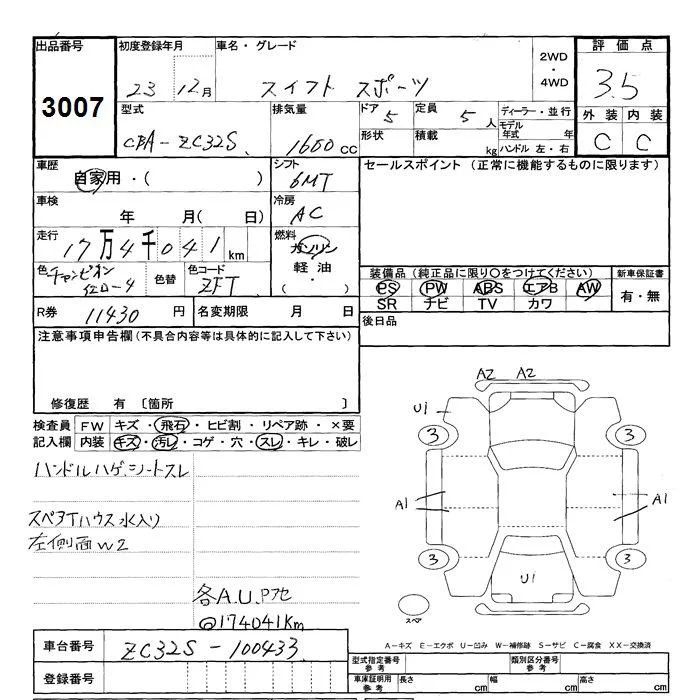 出品番号 初度登録年月 車名・グレード 評価点
3007 23 12月 スイフト スポーツ 2WD・4WD 3.5
型式 排気量 ドア 定員 ディーラー・並行 外装 内装
CBA-ZC32S 1600CC 5 5人 モデル年式 年 C C
形状 積載 kg ハンドル 左・右
車歴 シフト セールスポイント (正常に機能するものに限ります)
自家用・( ) 6MT
車検 冷房
年 月( 日) AC
走行 燃料
17万4千041km ガソリン
軽油・( )
色 色替 色コード 装備品(純正品に限り○をつけてください) 新車保証書
チャンピオン ZFT PS PW ABS エアB AW 有・無
イエロー4 SR ナビ TV カワ
R券 11430円 名変期限 月 日 後日品
注意事項申告欄(不具合内容等は具体的に記入して下さい)
修復歴 有 〔箇所 〕
検査員 FW キズ・飛石・ヒビ割・リペア跡・×要
記入欄 内装 キズ・汚レ・コゲ・穴・スレ・キレ・破レ
ハンドルハゲ、シートスレ
スペアTハウス水入り
左側面W2
各A.U.Pアセ
@174041Km
A2 A2
U1
3 3
A1 A1
3 3
U1
スペア
A-キズ E-エクボ U-凹み W-補修跡 S-サビ C-腐食 XX-交換済
車台番号 ZC32S-100433
登録番号
型式指定番号 参考 類別区分番号 参考
車庫証明用 参考 長さ cm 幅 cm 高さ cm